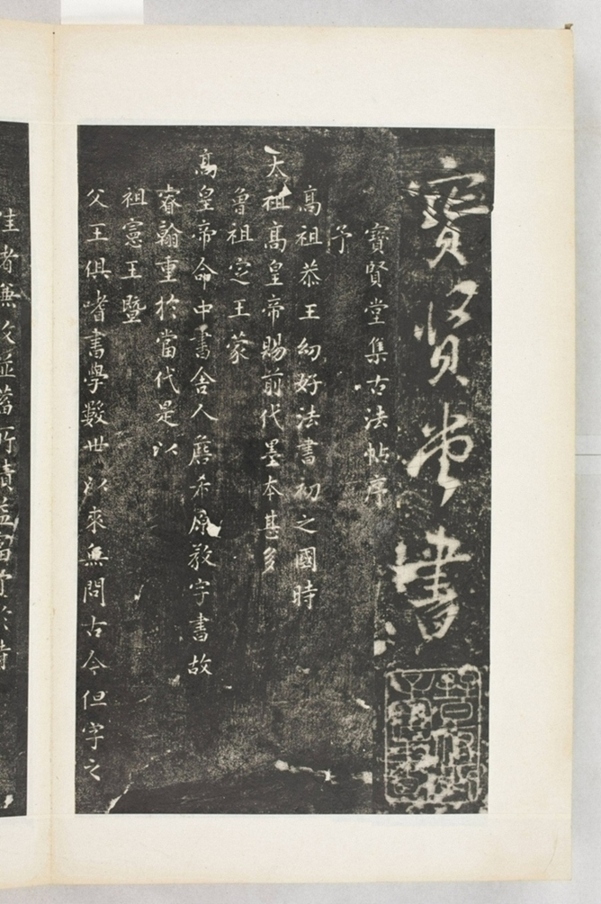 寳賢堂書
寳賢堂集古法帖序
予
高祖恭王幼好法書初之國時
天祖髙皇帝賜前代墨本甚多
魯祖定王蒙
髙皇帝命中書舍人詹希原教字書故
睿翰重於當代是以
祖憲王曁
父王俱嗜書學數世以來無問古今但字之
佳者無